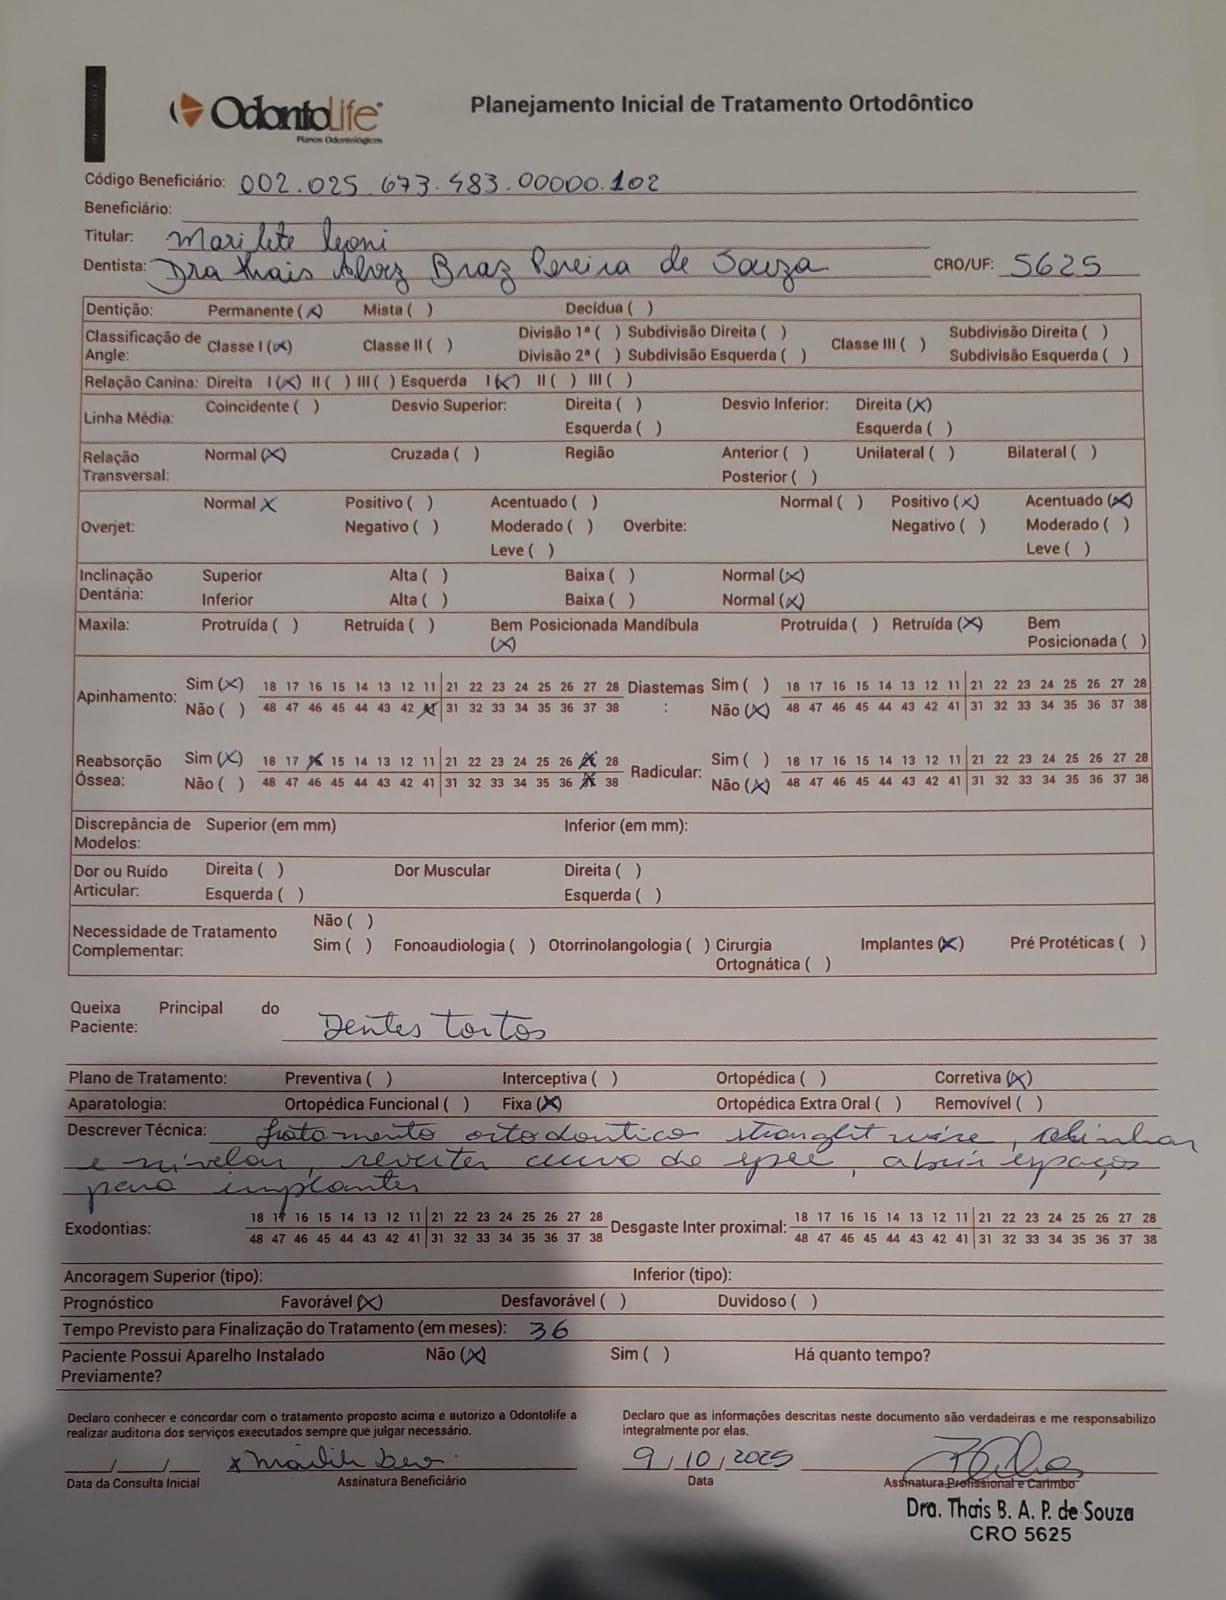 OdontoLife®
Planos Odontológicos
Planejamento Inicial de Tratamento Ortodôntico
Código Beneficiário: 002.025.673.483.00000.102
Beneficiário:
Titular: Marilete Leoni
Dentista: Dra Thais Alvez Braz Pereira de Souza CRO/UF: 5625
Dentição: Permanente (X) Mista ( ) Decídua ( )
Classificação de Angle: Classe I (X) Classe II ( ) Divisão 1ª ( ) Subdivisão Direita ( ) Classe III ( ) Subdivisão Direita ( )
Divisão 2ª ( ) Subdivisão Esquerda ( ) Subdivisão Esquerda ( )
Relação Canina: Direita I (X) II ( ) III ( ) Esquerda I (X) II ( ) III ( )
Linha Média: Coincidente ( ) Desvio Superior: Direita ( ) Desvio Inferior: Direita (X)
Esquerda ( ) Esquerda ( )
Relação Transversal: Normal (X) Cruzada ( ) Região Anterior ( ) Unilateral ( ) Bilateral ( )
Posterior ( )
Normal X Positivo ( ) Acentuado ( ) Normal ( ) Positivo (X) Acentuado (X)
Overjet: Negativo ( ) Moderado ( ) Overbite: Negativo ( ) Moderado ( )
Leve ( ) Leve ( )
Inclinação Superior Alta ( ) Baixa ( ) Normal (X)
Dentária: Inferior Alta ( ) Baixa ( ) Normal (X)
Maxila: Protruída ( ) Retruída ( ) Bem Posicionada (X) Mandíbula Protruída ( ) Retruída (X) Bem Posicionada ( )
Apinhamento: Sim (X) 18 17 16 15 14 13 12 11 21 22 23 24 25 26 27 28 Diastemas: Sim ( ) 18 17 16 15 14 13 12 11 21 22 23 24 25 26 27 28
Não ( ) 48 47 46 45 44 43 42 41 31 32 33 34 35 36 37 38 Não (X) 48 47 46 45 44 43 42 41 31 32 33 34 35 36 37 38
Reabsorção Sim (X) 18 17 16 15 14 13 12 11 21 22 23 24 25 26 27 28 Radicular: Sim ( ) 18 17 16 15 14 13 12 11 21 22 23 24 25 26 27 28
Óssea: Não ( ) 48 47 46 45 44 43 42 41 31 32 33 34 35 36 37 38 Não (X) 48 47 46 45 44 43 42 41 31 32 33 34 35 36 37 38
Discrepância de Modelos: Superior (em mm) Inferior (em mm):
Dor ou Ruído Direita ( ) Dor Muscular Direita ( )
Articular: Esquerda ( ) Esquerda ( )
Não ( )
Necessidade de Tratamento Complementar: Sim ( ) Fonoaudiologia ( ) Otorrinolangologia ( ) Cirurgia Ortognática ( ) Implantes (X) Pré Protéticas ( )
Queixa Principal do Paciente: Dentes tortos
Plano de Tratamento: Preventiva ( ) Interceptiva ( ) Ortopédica ( ) Corretiva (X)
Aparatologia: Ortopédica Funcional ( ) Fixa (X) Ortopédica Extra Oral ( ) Removível ( )
Descrever Técnica: tratamento ortodontico straught wire, alinhar
e nivelar, reverter curva de spee, abrir espaços
para implantes
Exodontias: 18 17 16 15 14 13 12 11 21 22 23 24 25 26 27 28 Desgaste Inter proximal: 18 17 16 15 14 13 12 11 21 22 23 24 25 26 27 28
48 47 46 45 44 43 42 41 31 32 33 34 35 36 37 38 48 47 46 45 44 43 42 41 31 32 33 34 35 36 37 38
Ancoragem Superior (tipo): Inferior (tipo):
Prognóstico Favorável (X) Desfavorável ( ) Duvidoso ( )
Tempo Previsto para Finalização do Tratamento (em meses): 36
Paciente Possui Aparelho Instalado Previamente? Não (X) Sim ( ) Há quanto tempo?
Declaro conhecer e concordar com o tratamento proposto acima e autorizo a Odontolife a
realizar auditoria dos serviços executados sempre que julgar necessário.
Declaro que as informações descritas neste documento são verdadeiras e me responsabilizo
integralmente por elas.
__/__/__ x 9/10/2025
Data da Consulta Inicial Assinatura Beneficiário Data Assinatura Profissional e Carimbo
Dra. Thais B. A. P. de Souza
CRO 5625